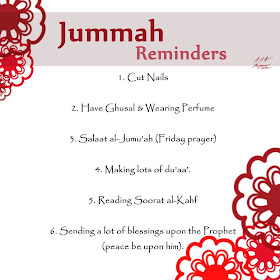 Jummah
Reminders
1. Cut Nails
2. Have Ghusal & Wearing Perfume
3. Salaat al-Jumu'ah (Friday prayer)
4. Making lots of du'aa'.
5. Reading Soorat al-Kahf
6. Sending a lot of blessings upon the Prophet
(peace be upon him).